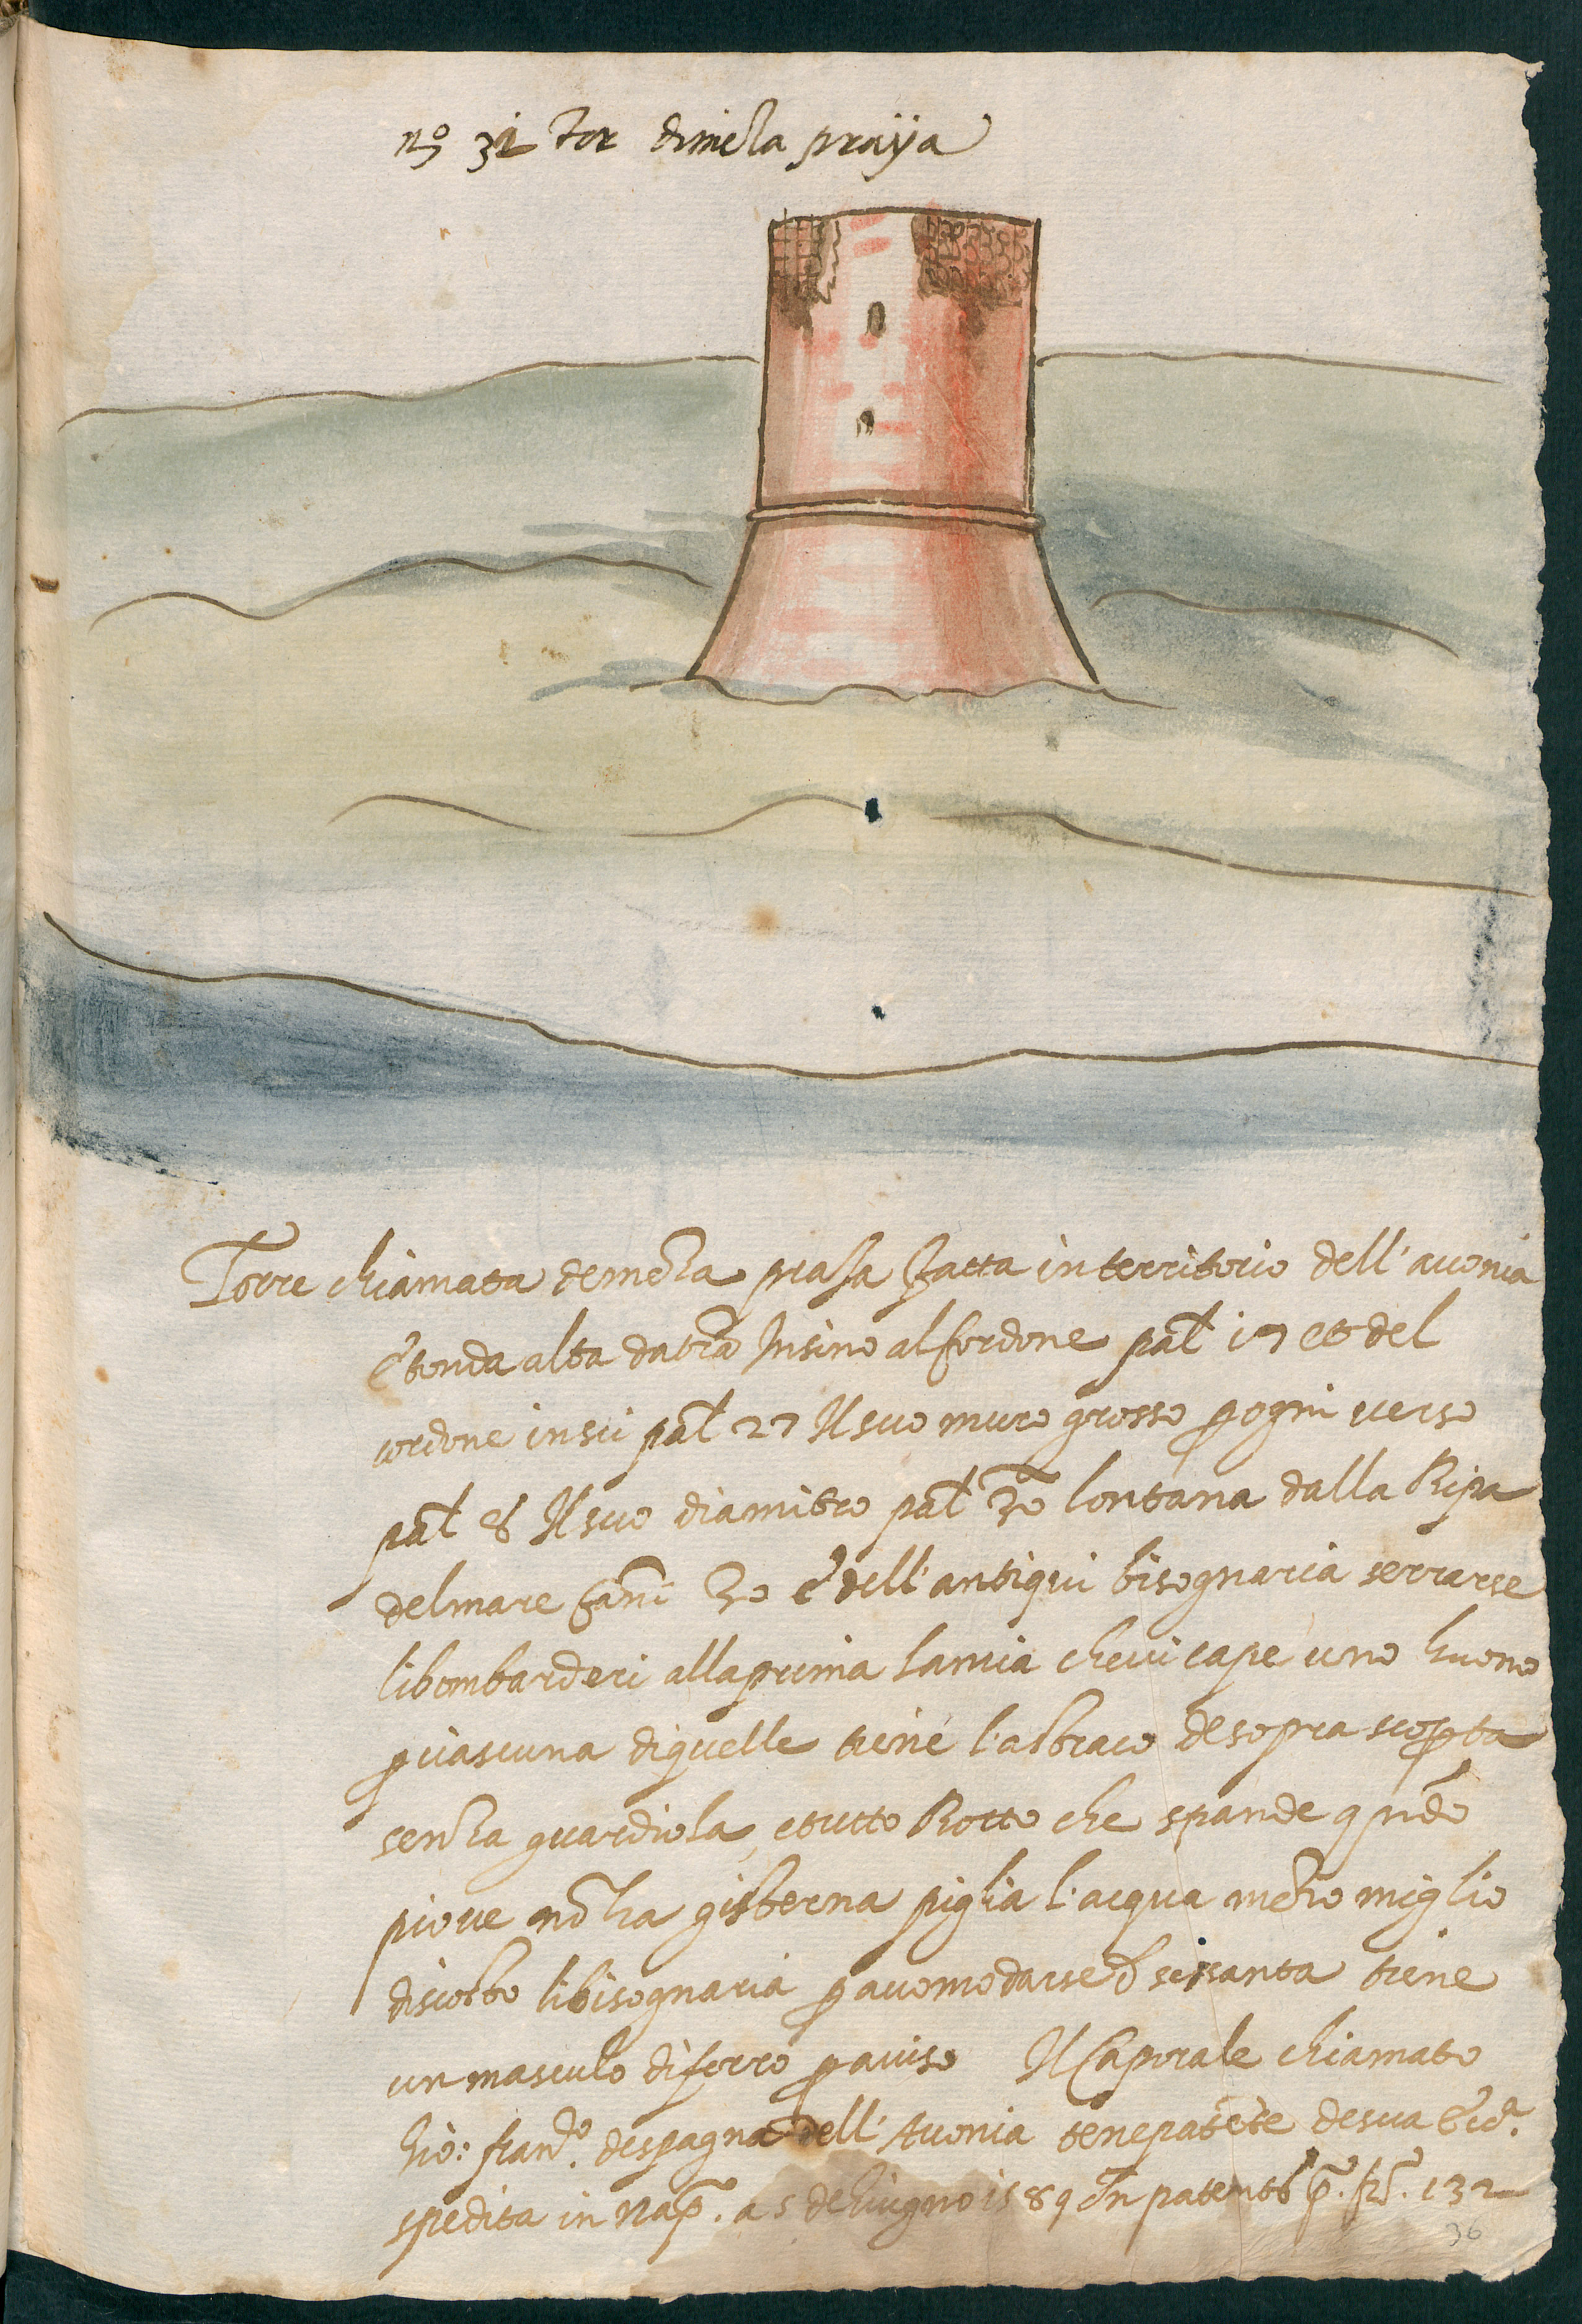 nº 31 Tor di meza prayia
Torre chiamata de meza praja fatta in territorio dell'auonia
è tonda alta da trã Insino al Cordone pal 17 et del
cordone in sù pal 27 Il suo muro grosso p ogni verso
pal 8 Il suo diamitro pal 30 lontana dalla Ripa
del mare Canne 30 è dell'antiqui bisognaria serrarse
li bombarderi alla prima lamia che vi cape uno huomo
p ciascuna di quelle tiene l'astraco de sopra scoperta
senza guardiola, et tutto Rotto che spande qñdo
piove nõ ha gisterna piglia l'acqua mezo miglio
discosto li bisognaria p accomodarse d sissanta tiene
un masculo di ferro p aviso Il Caporale chiamato
Gio: fran.co despagna dell'Auonia tene patẽte de sua Ecc.ª
spedita in Nap. a 5 de Giugno 1589 In patentiũ p.º fº. 132
36